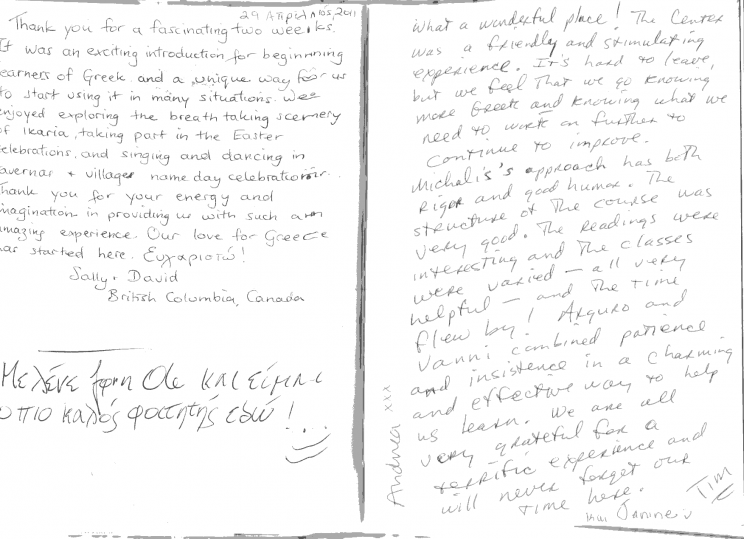 29 Απριλιος, 2011
Thank you for a fascinating two weeks.
It was an exciting introduction for beginning
earners of Greek and a unique way for us
to start using it in many situations. We
enjoyed exploring the breath taking scenery
of Ikaria, taking part in the Easter
celebrations, and singing and dancing in
avernas + villages name day celebrations.
Thank you for your energy and
magination in providing us with such an
mazing experience. Our love for Greece
as started here. Ευχαριστώ!
Sally. David
British Columbia, Canada
Με λένε και είμαι
ο πιο καλός φοιτητής εδώ!...
What a wonderful place! The Center
was a friendly and stimulating
experience. It's hard to leave,
but we feel that we go knowing
more Greek and knowing what we
need to work on further to
continue to improve.
Michalis's approach has both
rigor and good humor. The
structure of the course was
very good. The readings were
interesting and the classes
were varied – all very
helpful – and the time
flew by! Arguro and
Vanni combined patience
and insistence in a charming
and effective way to help
us learn. We are all
very grateful for a
terrific experience and
will never forget our
time here.
Tim
και Janine
Andrea xxx